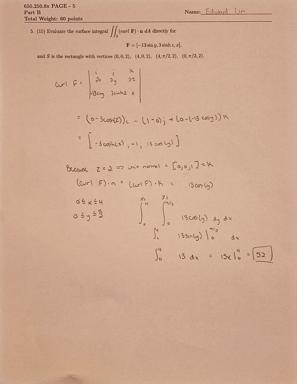 650.250.8x PAGE - 5
Part B
Name: Edward Lim
Total Weight: 60 points
5. (10) Evaluate the surface integral ∬ (curl F) · n dA directly for
F = [-13 sin y, 3 sinh z, x],
and S is the rectangle with vertices (0,0,2), (4,0,2), (4,π/2,2), (0,π/2,2).
Curl F = | i j k
-13siny 3sinhz x |
= (0-3cosh(z))i - (1-0)j + (0-(-13cosy))k
= [-3cosh(z), -1, 13cos(y)]
Because z=2 => unit normal = [0,0,1] = k
(curl F)·n = (curl F)·k = 13cos(y)
0≤x≤4
0≤y≤π/2
∫₀⁴ ∫₀^π/2 13cos(y) dy dx
∫₀⁴ 13sin(y) |₀^π/2 dx
∫₀⁴ 13 dx = 13x|₀⁴ = 52